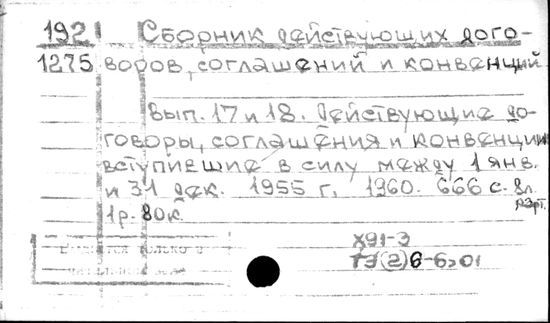 192 Сборник действующих дого-
1275 воров, соглашений и конвенций
Вып. 17 и 18. Действующие до-
говоры, соглашения и конвенции
вступившие в силу между 1 янв.
и 31 дек. 1955 г. 1960. 666 с.
1р. 80к.
Х91-3